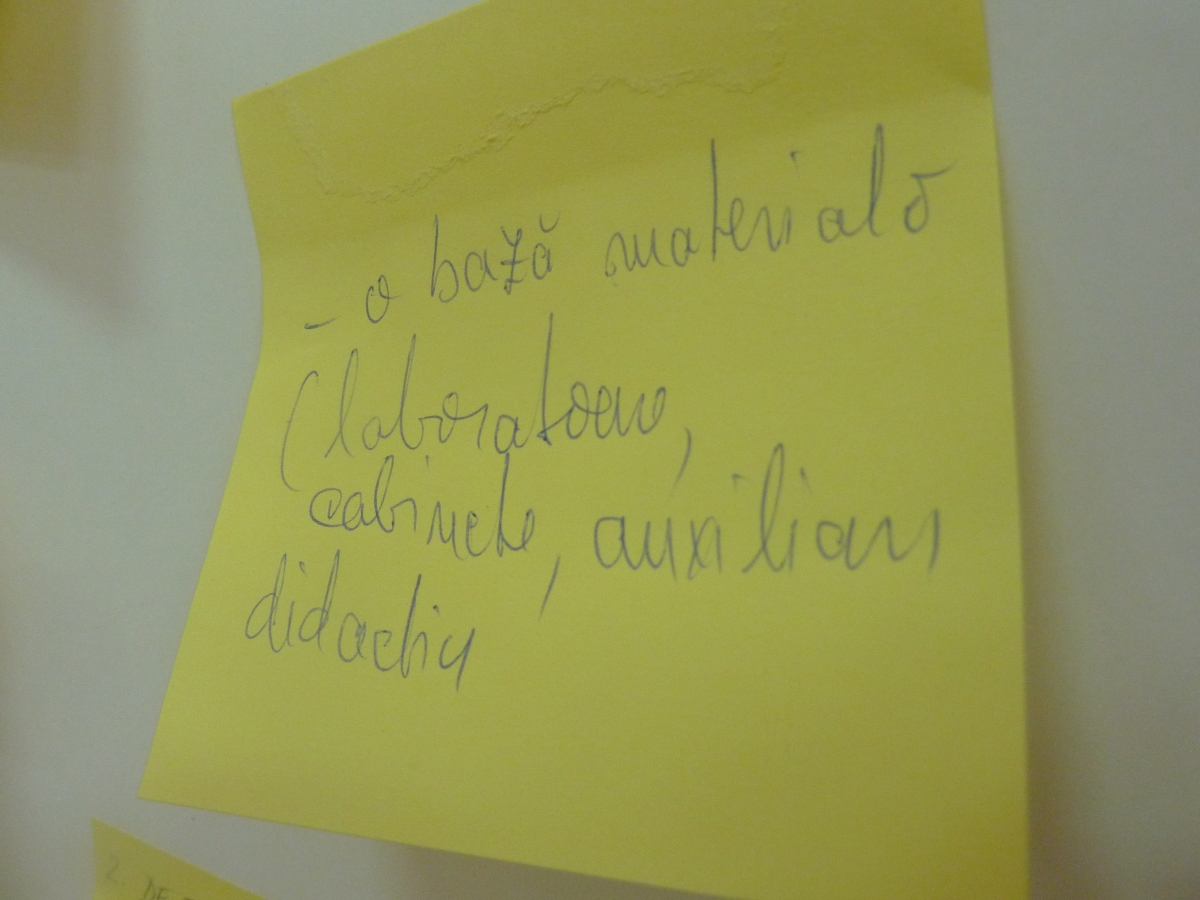 - o bază materială
(laboratoare,
cabinete, auxiliari
didactici
2.